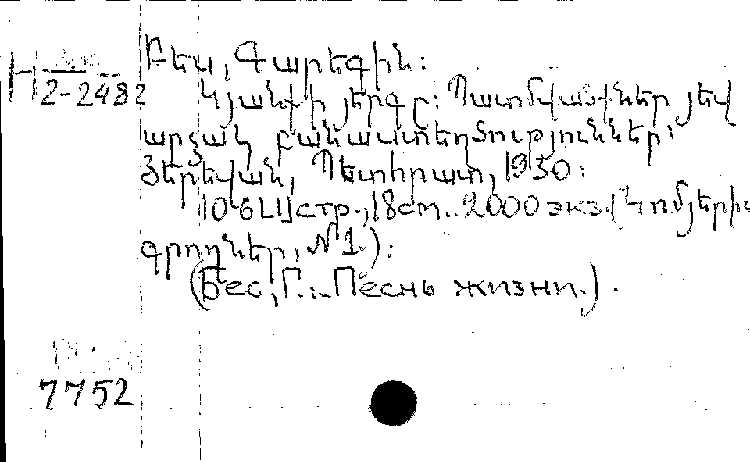 Բես, Գարեգին:
H 2-2482
Կյանքի յերգը: Պատմվածքներ յեվ
արձակ բանաստեղծություններ:
Յերեվան, Պետհրատ, 1930:
106 стр., 18 ст. 2000 экз. (Կոմյերիտ
գրողներ, № 1):
(Бес, Г. Песнь жизни.).
7752